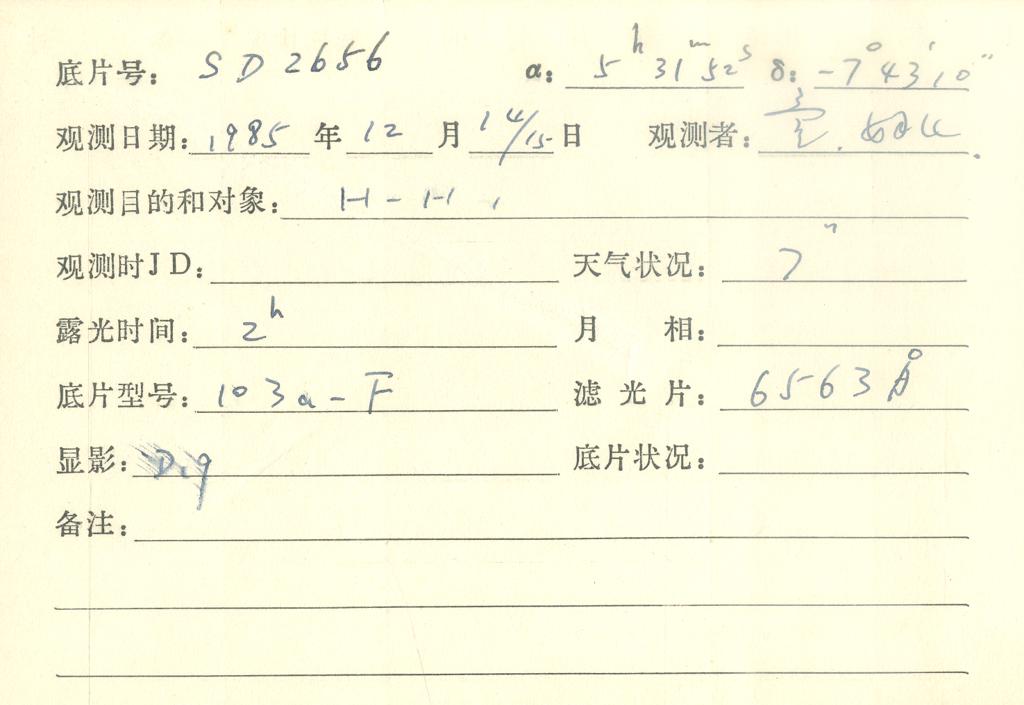 底片号: SD2656 α: 5ʰ 31ᵐ 52ˢ δ: -7° 43′ 10″
观测日期: 1985 年 12 月 14/15 日 观测者:
观测目的和对象: H-H 1
观测时JD: 天气状况: 7″
露光时间: 2ʰ 月 相:
底片型号: 103a-F 滤光片: 6563Å
显影: D19 底片状况:
备注: